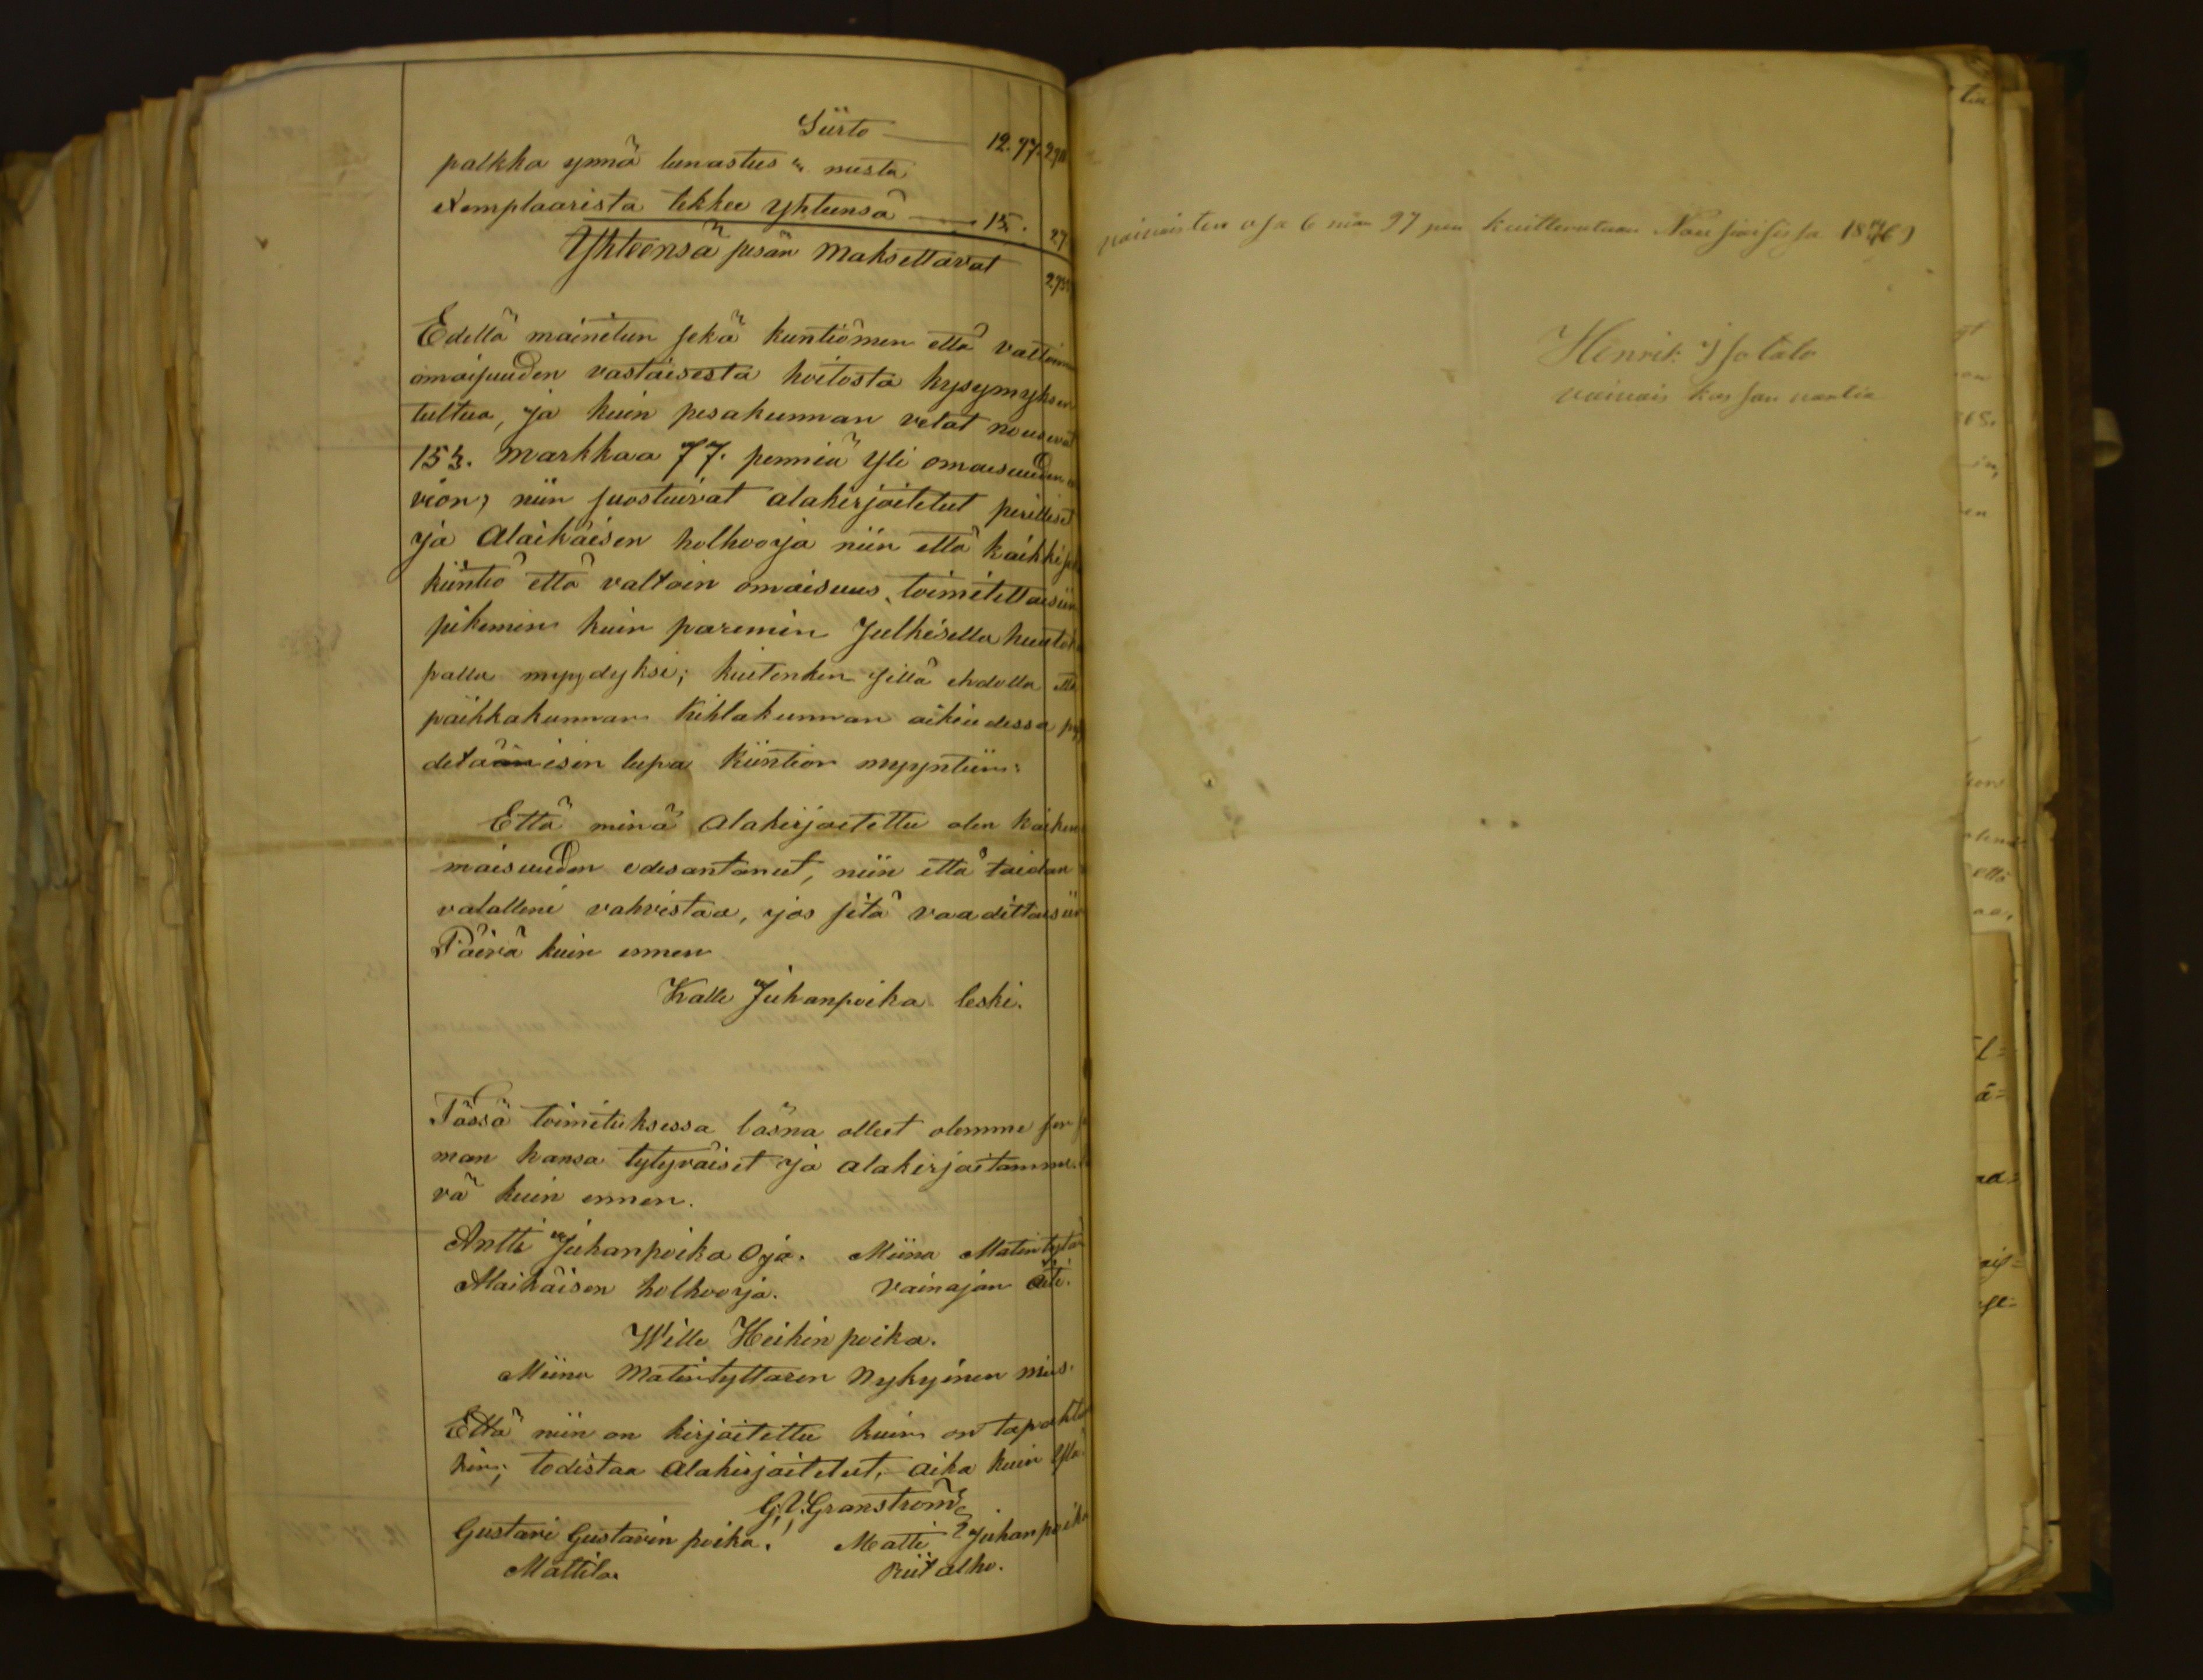 Siirto — 12. 97.
palkka ynnä lunastus
exemplaarista tekkee yhteensä — 15.
Yhteensä pesän Maksettavat
Edellä mainitun sekä kiintiömen että valtoimen
omaisuuden vastaisesta hoitosta kysymyksen
tultua, ja kuin pesakunnan velat nousevat
153. Markkaa 77. penniä Yli omaisuuden
vion, niin suostuivat alakirjoitetut perilliset
ja Alaikäisen holhooja niin että kaikki
kiintiö että valtoin omaisuus, toimitettaisiin
pikemin kuin paremin Julkisella huuto
palla myydyksi; kuitenkin sillä ehdolla
paikkakunnan Kihlakunnan oikeudessa
detäänisin lupa Kiintion myyntiin:
Että minä Alakirjoitettu olen kaiken
maisuuden edesantanut, niin että taidan
valalleni vahvistaa, jos sitä vaadittaisiin
Päivä kuin ennen
Kalle Juhanpoika leski.
Tässä toimituksessa läsna olleet olemme
man kansa tytyväiset ja alakirjoitamme
vä kuin ennen.
Antti Juhanpoika Oja. Miina Matintytär
Alaikäisen holhooja. Vainajan äiti.
Wille Heikin poika.
Miina Matintyttaren Nykyinen mies.
Että niin on kirjoitettu kuin on tapahtu
kin; todistaa Alakirjoitetut, aika kuin Yllä
G. V. Granström
Gustavi Gustavin poika. Matti Juhanpoika
Mattila Riitalho.
vaivaisten osa 6 97 pen kuitterataan Nousiaisissa 1876
Henrik Isotalo
vaivais kassan